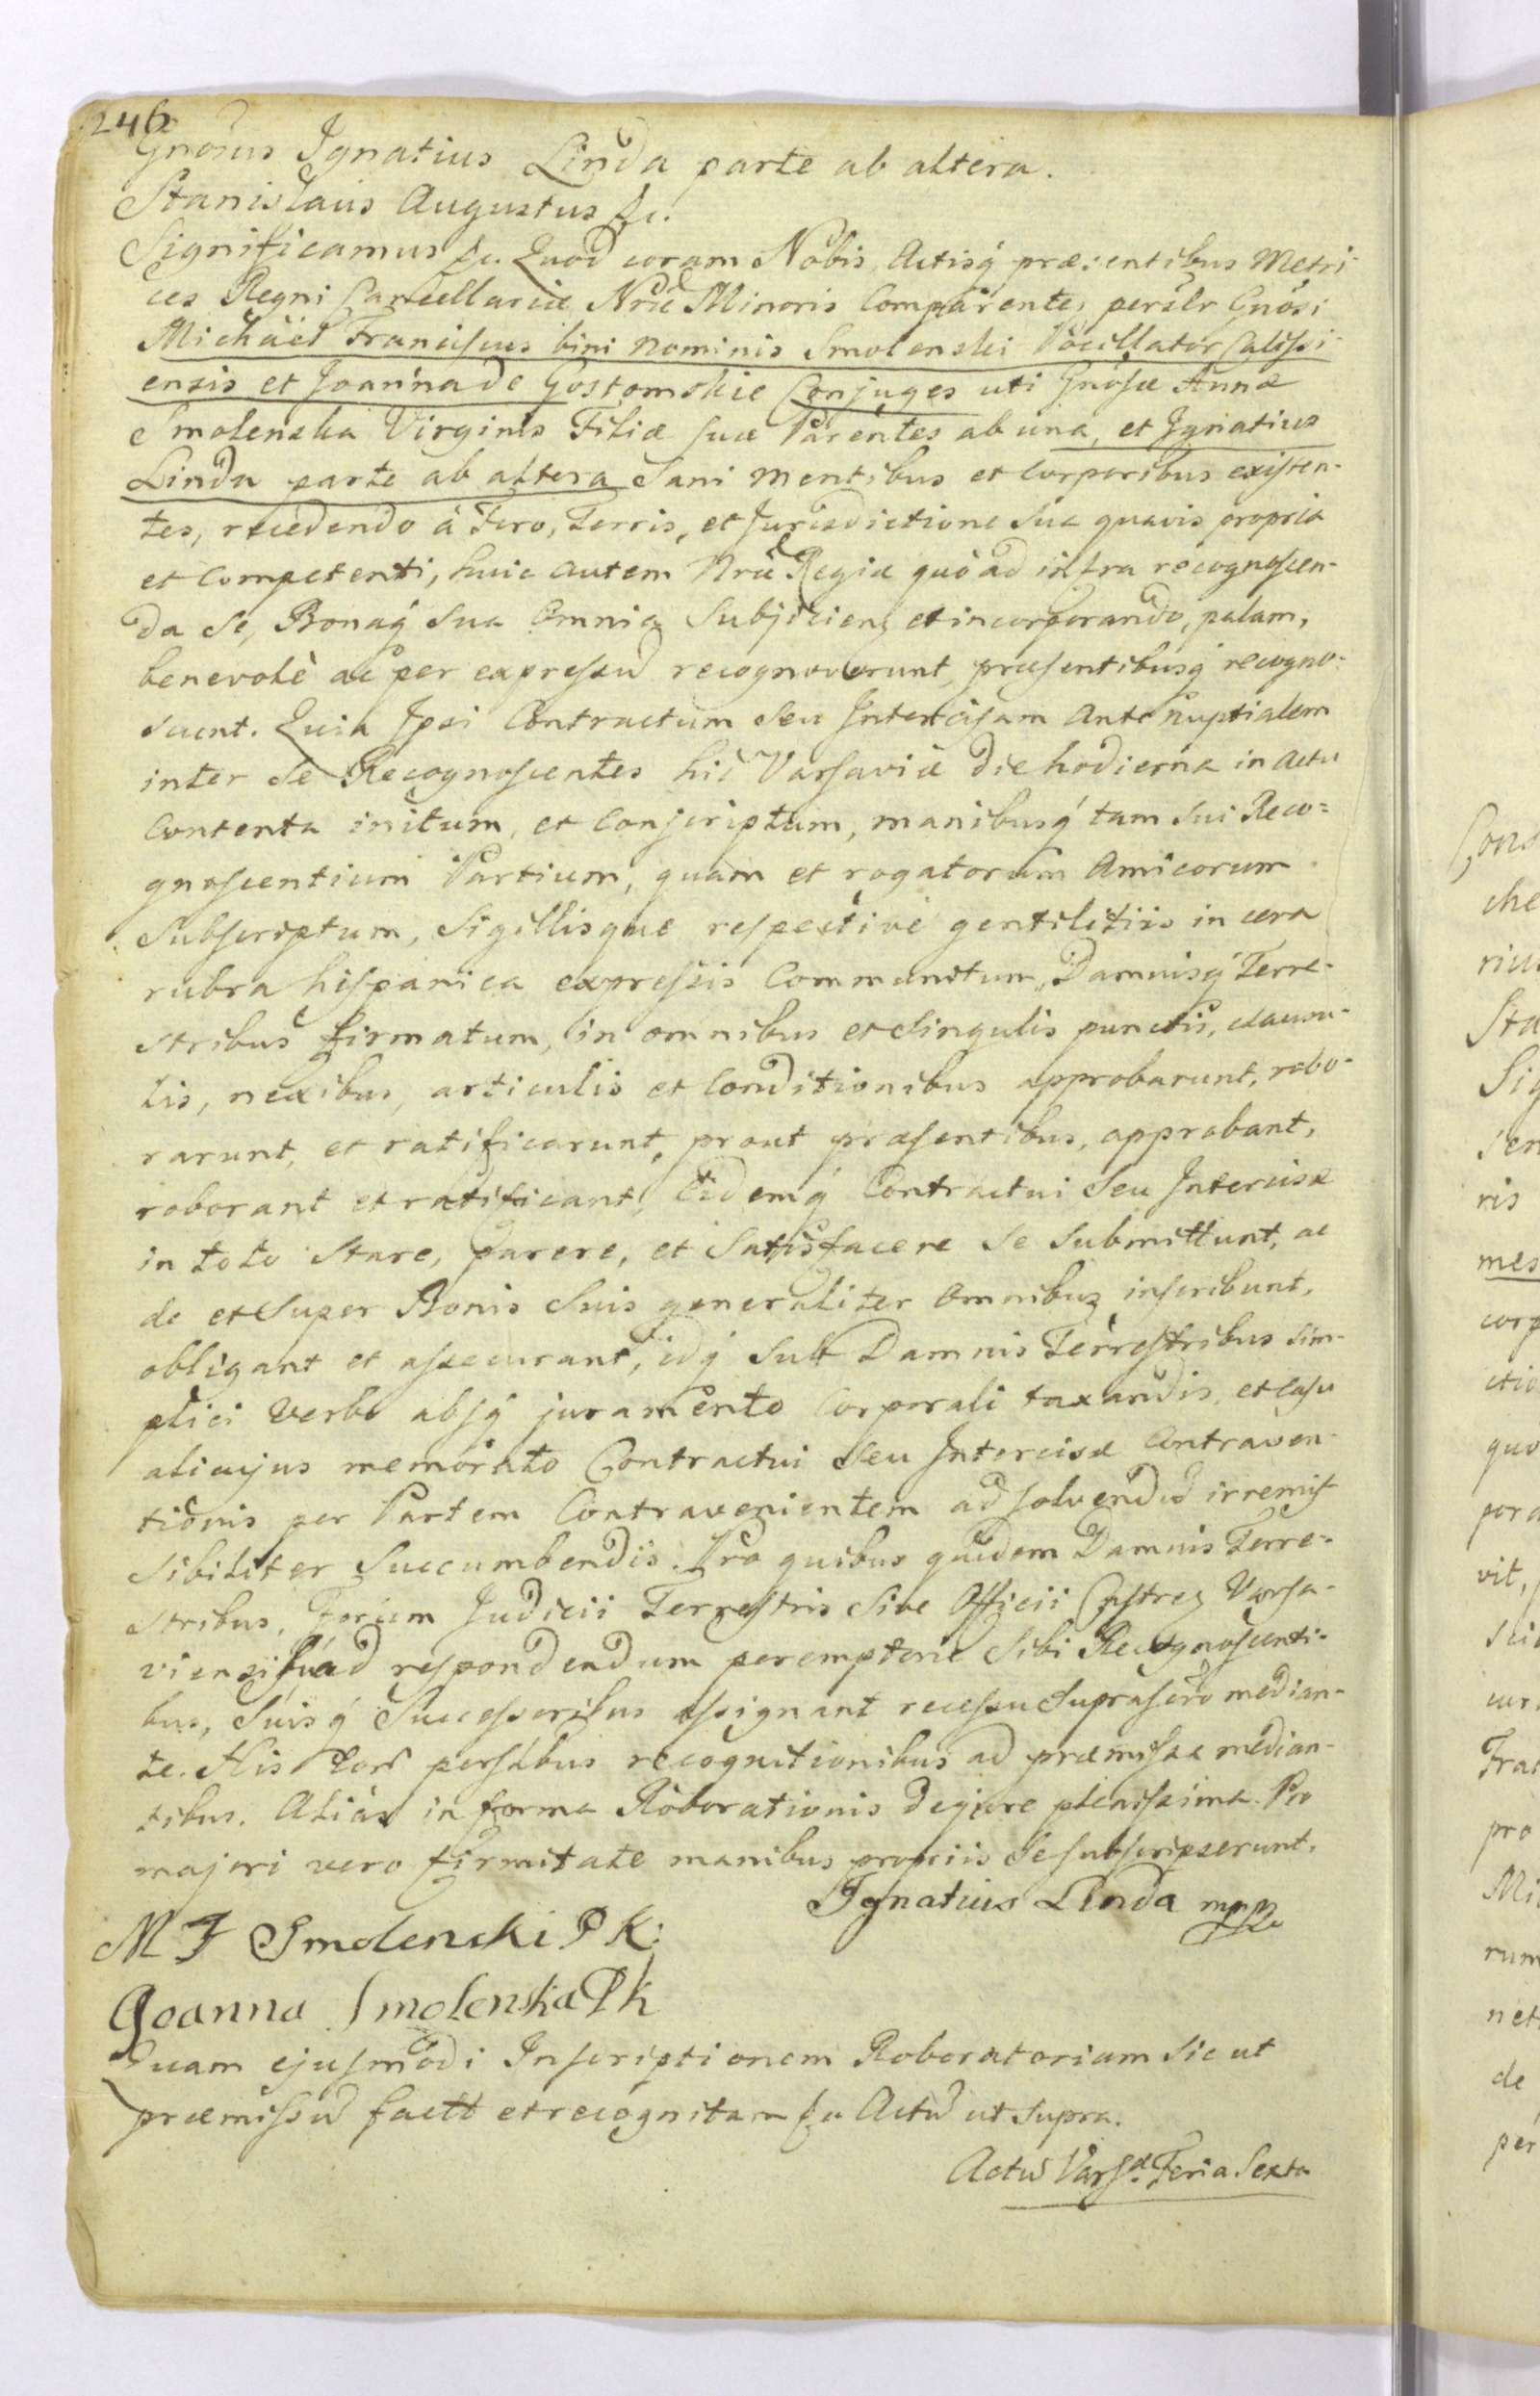 246
Gnosus Ignatius Linda parte ab altera.
Stanislaus Augustus &c.
Significamus &c. Quod coram Nobis, Actisq́ præsentibus Metri-
ces Regni Cancellariæ Nræ Minoris Comparentes persлr Gnosi
Michael Franciscus bini nominis Smolenski Pocillator Calissi-
ensis et Joanna de Gostomskie Conjuges uti Gnosæ Annæ
Smolenska Virginis Filiæ suæ Parentes ab una, et Ignatius
Linda parte ab altera Sani mentibus et Corporibus existen-
tes, recedendo á Foro, Terris, et Jurisdictione Sua quavis propria
et Competenti, huic autem Nræ Regiæ quò ad infra recognoscen-
da Se, Bonaq́ Sua Omnia Subjiciens et incorporando, palam,
benevolè ac per expressũ recognoverunt, præsentibusq́ recogno-
scunt. Quia Ipsi Contractum Seu Intercisam Antenuptialem
inter Se Recognoscentes hic Varsaviæ die hodierna in Actu
Contenta initum, et Conscriptum, manibusq́ tam Sui Reco=
gnoscentium Partium, quam et rogatorum Amicorum
Subscriptum, Sigillisque respective gentilitiis in cera
rubra hispanica expressis Communitum, Damnisq́ Terre-
stribus firmatum, in omnibus et Singulis punctis, clausu-
lis, nexibus, articulis et Conditionibus approbarunt, robo-
rarunt, et ratificarunt, prout præsentibus, approbant,
roborant et ratificant, Eidemq́ Contractui Seu Intercisæ
in toto Stare, parere, et Satisfacere Se Submittunt, ac
de et Super Bonis Suis generaliter Omnibus inscribunt,
obligant et assecurant, idq́ Sub Damnis Terrestribus Sim-
plici Verbo absq́ juramento Corporali taxandis, et Casu
alicujus memorato Contractui Seu Intercisæ Contraven-
tionis per Partem Contravenientem ad solvendũ irremis-
sibiliter Succumbendis. Pro quibus quidem Damnis Terre-
stribus, Forum Judicii Terrestris Sive Officii Castrens Varsa-
viensibus ad respondendum peremptorie Sibi Recognoscenti-
bus, Suisq́ Successoribus assignant recessu Suprascrõ median-
te. His Eorũ persлbus recognitionibus ad præmissa median-
tibus. Aliàs in forma Roborationis de jure plenissima. Pro
majori vero firmitate manibus propriis Se subscripserunt.
Ignatius Linda mpp
M F Smolenski P K:
Joanna Smolenska P K
Quam ejusmodi Inscriptionem Roboratoriam Sic ut
præmissũ factt et recognitam &c Actũ ut Supra.
Actũ Varsæ Feria Sexta